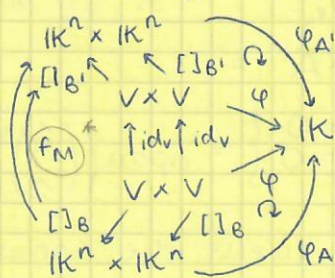 IKⁿ × IKⁿ φA'
[]B' []B'
V × V φ
fM * idv idv IK
V × V φ
[]B []B
IKⁿ × IKⁿ φA